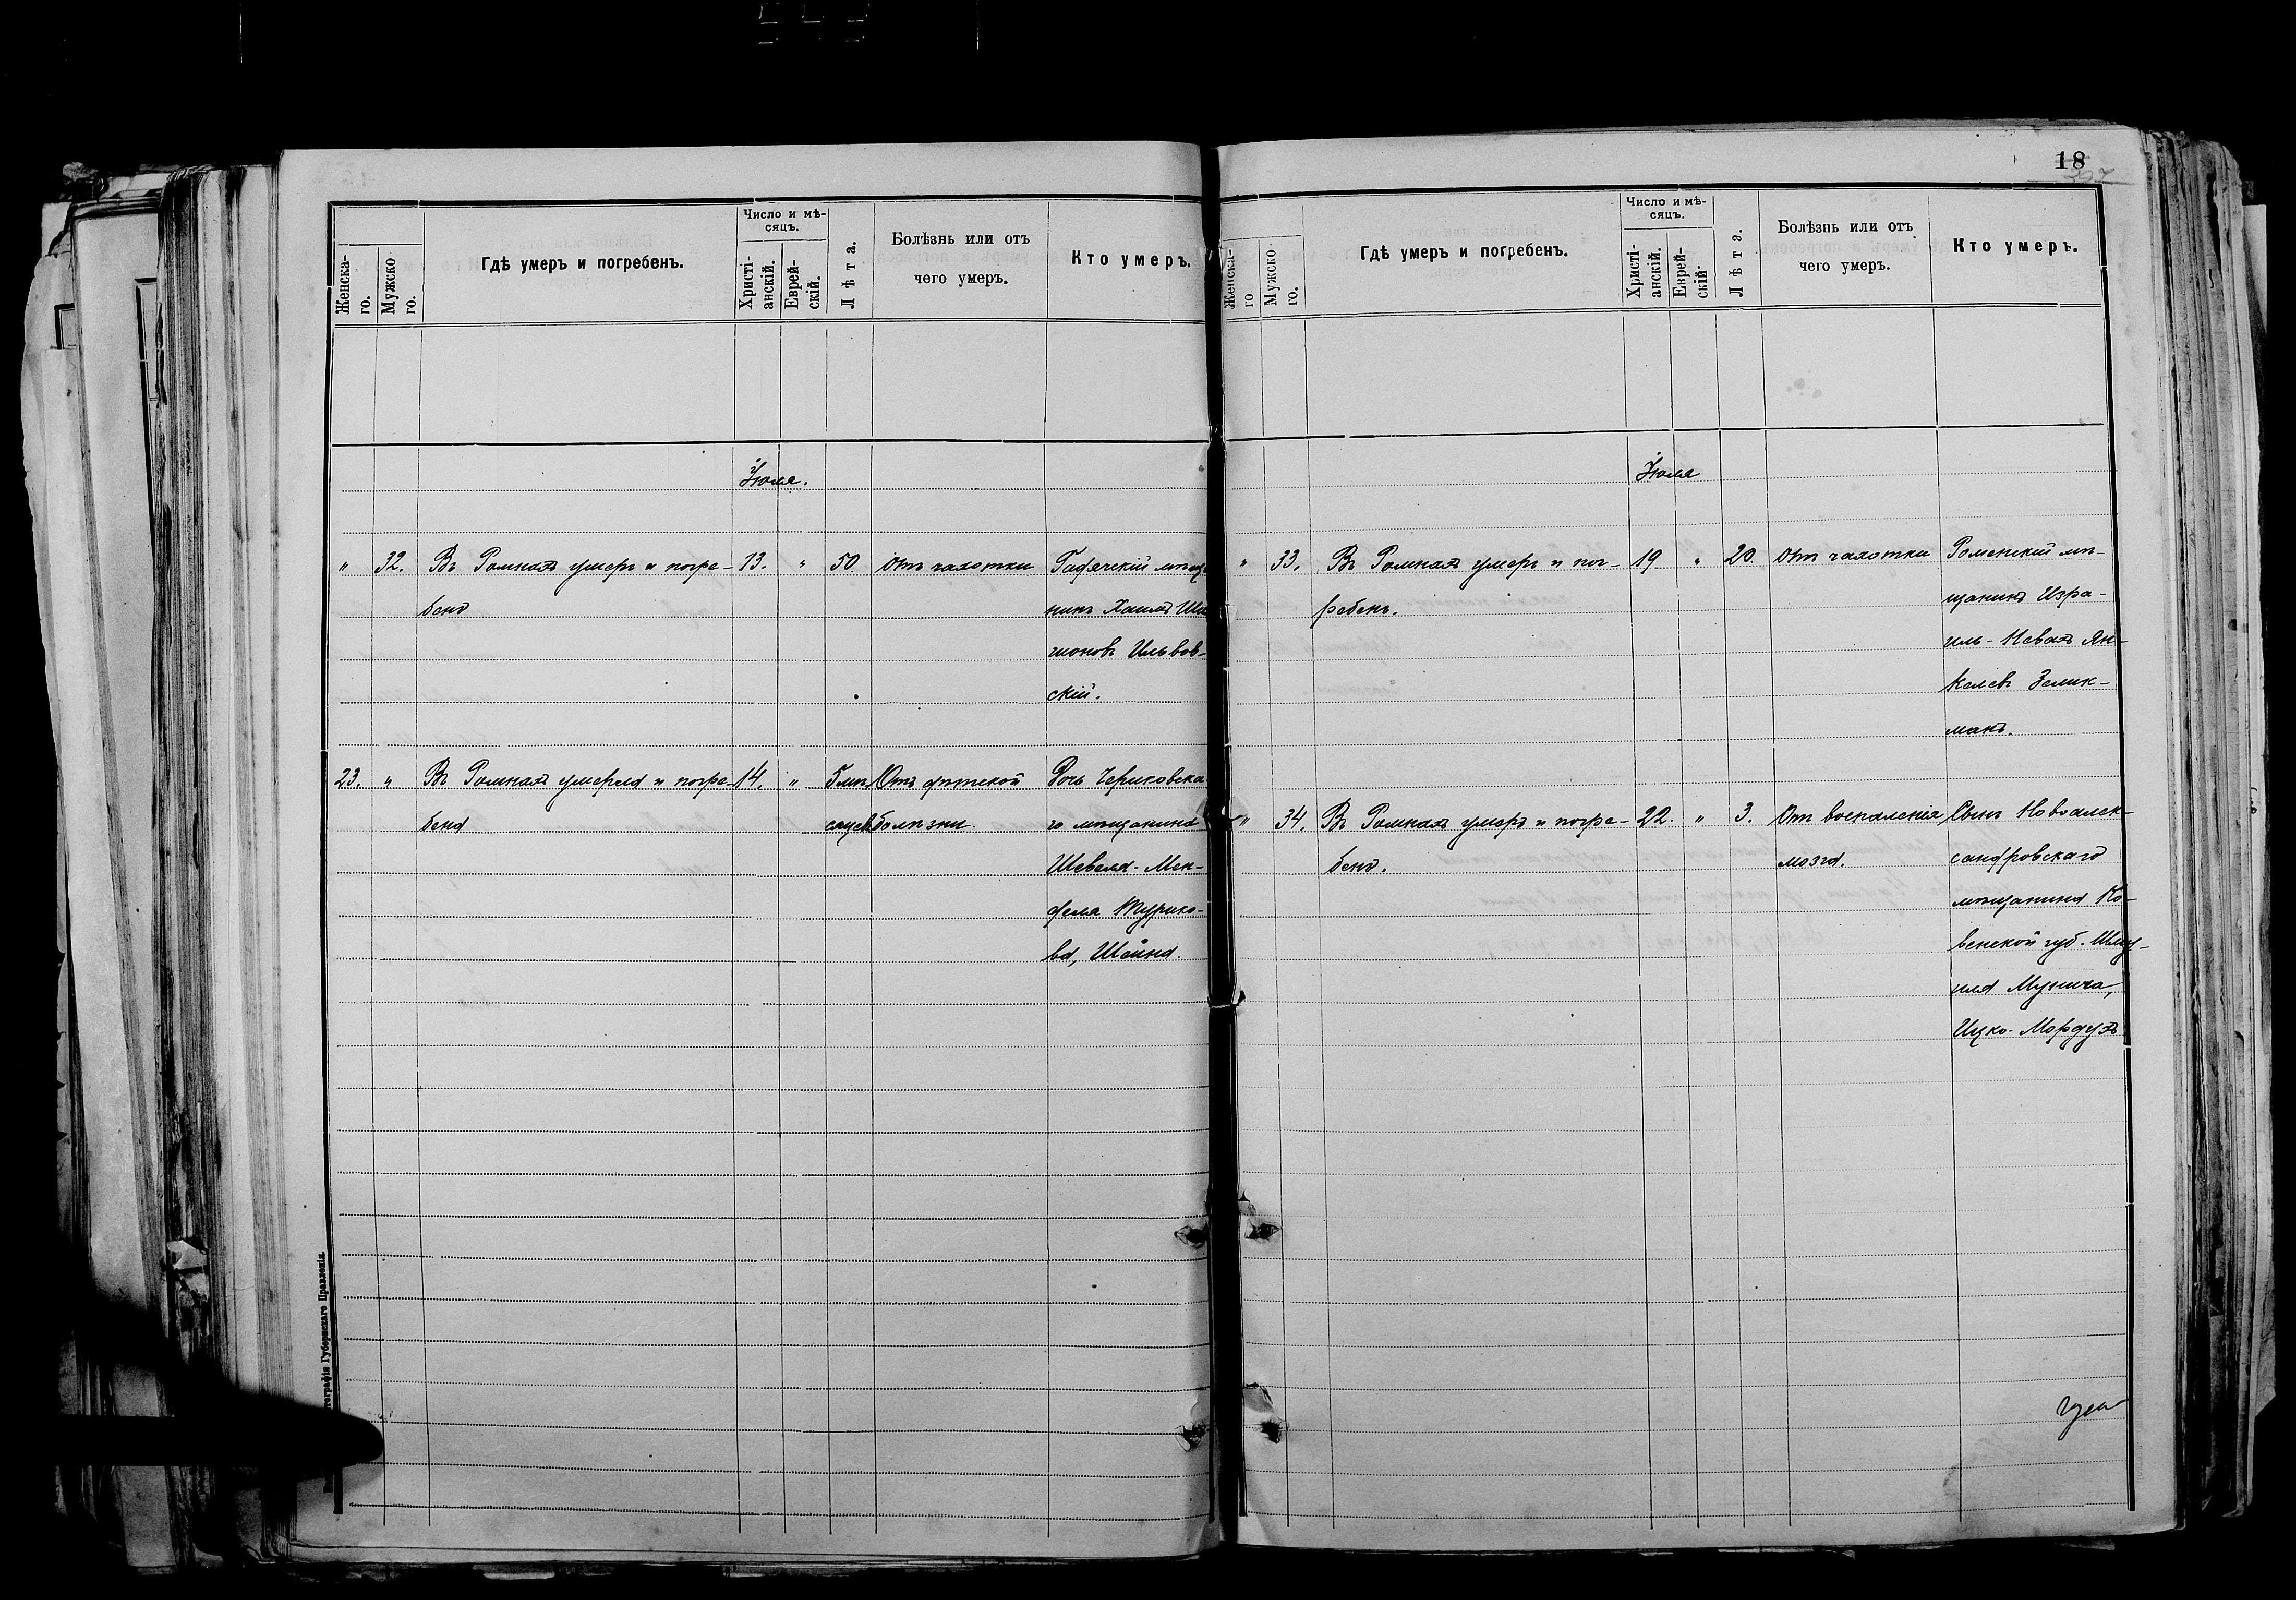 18
Женска-
го.
Мужско
го.
Гдѣ умеръ и погребенъ.
Число и мѣ-
сяцъ.
Христі-
анскій.
Еврей-
скій.
Лѣта.
Болѣзнь или отъ
чего умеръ.
Кто умеръ.
Іюля.
" 32. Въ Ромнахъ умеръ и погре- 13. " 50 Отъ чахотки Гадячскій мѣща
бенъ никъ Хаимъ
Ильвов-
скій.
23. " Въ Ромнахъ умерла и погре- 14. " 5 мѣ Отъ дѣтской Дочь Чериковска
бена сяцев болѣзни. го мѣщанина
Шевеля-Мен-
деля Турико-
ва, Шейна.
ографія Губернскаго Правленія.
Женска-
го
Мужско
го.
Гдѣ умеръ и погребенъ.
Число и мѣ-
сяцъ.
Христі-
анскій.
Еврей-
скій.
Лѣта.
Болѣзнь или отъ
чего умеръ.
Кто умеръ.
Іюля
" 33. Въ Ромнахъ умеръ и пог- 19. " 20. Отъ чахотки Роменскій мѣ-
ребенъ. щанинъ Изра-
иль-Невахъ Ян-
келевъ Зелик-
манъ.
" 34. Въ Ромнахъ умеръ и погре- 22. " 3. Отъ воспаленія Сынъ Новоалек-
бенъ. мозга. сандровскаго
мѣщанина Ко-
венской губ. Шму-
ила Мунича,
Ицко-Мордухъ